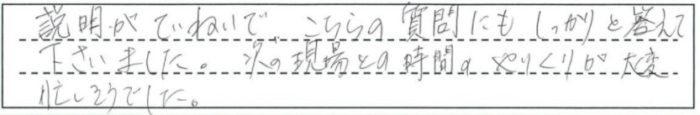 説明がていねいで こちらの質問にもしっかりと答えて
下さいました。次の現場との時間のやりくりが大変
忙しそうでした。